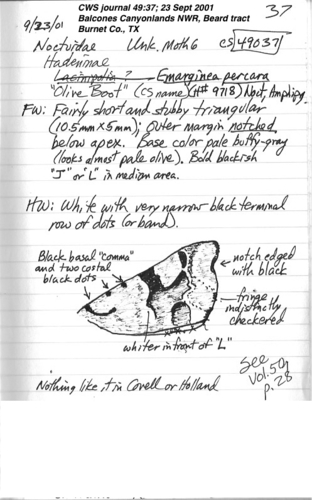 CWS journal 49:37; 23 Sept 2001
Balcones Canyonlands NWR, Beard tract
Burnet Co., TX
37
9/23/01
Noctuidae Unk. Moth 6 CS 49037
Hadeninae
Lacinipolia ? Emarginea percara
"Olive Boot" (CS name) (H# 9718) Noct, Amphipy.
FW: Fairly short and stubby triangular
(10.5mm X 5mm); Outer margin notched
below apex. Base color pale buffy-gray
(looks almost pale olive). Bold blackish
"J" or "L" in median area.
HW: White with very narrow black terminal
row of dots (or band).
Black basal "comma"
and two costal
black dots
notch edged
with black
fringe
indistinctly
checkered
whiter in front of "L"
See
Vol. 50
p. 28
Nothing like it in Covell or Holland